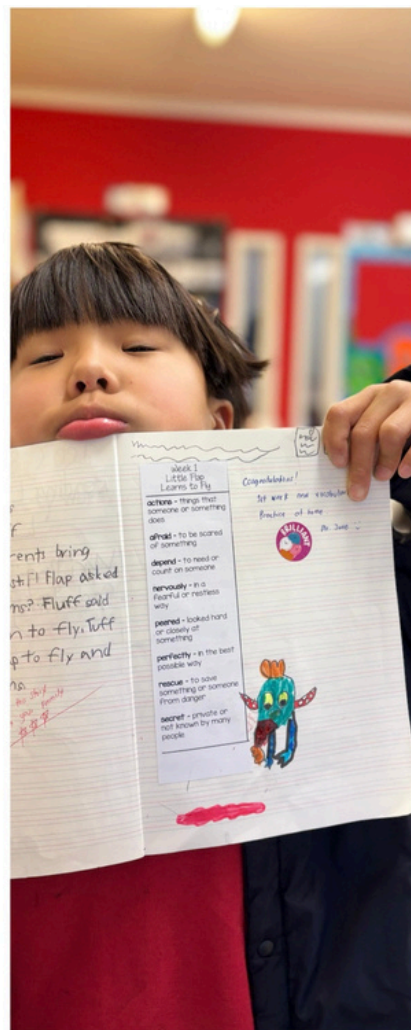 rents bring
Flap asked
ns? Fluff said
n to fly. Tuff
p to fly and
this story
Week 1
Little Flap
Learns to Fly
actions - things that
someone or something
does
afraid - to be scared
of something
depend - to need or
count on someone
nervously - in a
fearful or restless
way
peered - looked hard
or closely at
something
perfectly - in the best
possible way
rescue - to save
something or someone
from danger
secret - private or
not known by many
people
Congratulations!
work and
Practice at home
BRILLIANT
Mr.